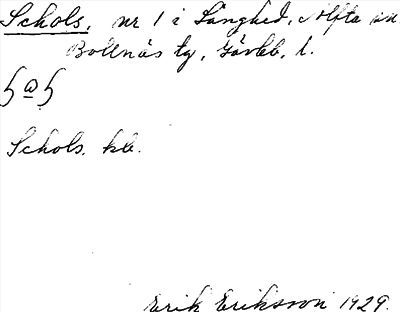 Schols, nr 1 i Långhed, Alfta sn
Bollnäs tg, Gävleb. l.
Schols. kb.
Erik Eriksson 1929.